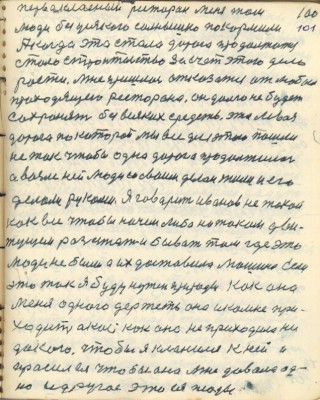 ресторан меня там 100
люди без всякого солнышко покормили 101
А когда эта стала дорога продолжать
стало строительство за счет этого дело
расти. Мне пришлось отказаться от
проходящего ресторана, он долго не будет
сохранят без всяких средств, эта левая
дорога по которой мы все до этого пошли
не так чтобы одна дорога продолжилась
а возле ней люди со своим делом жили и его
делали руками. Я говорит Иванов не такой
как вы чтобы на чем либо на таком
разъезжать и бывать там где это
люди не были а их доставила машина Если
это так я буду нужен природе Как она
меня одного держать она и ко мне при-
ходит, а как она не приходила ни
до кого, чтобы я кланялся к ней и
просил ея чтобы она мне давала од-
но и другое это ея люди.